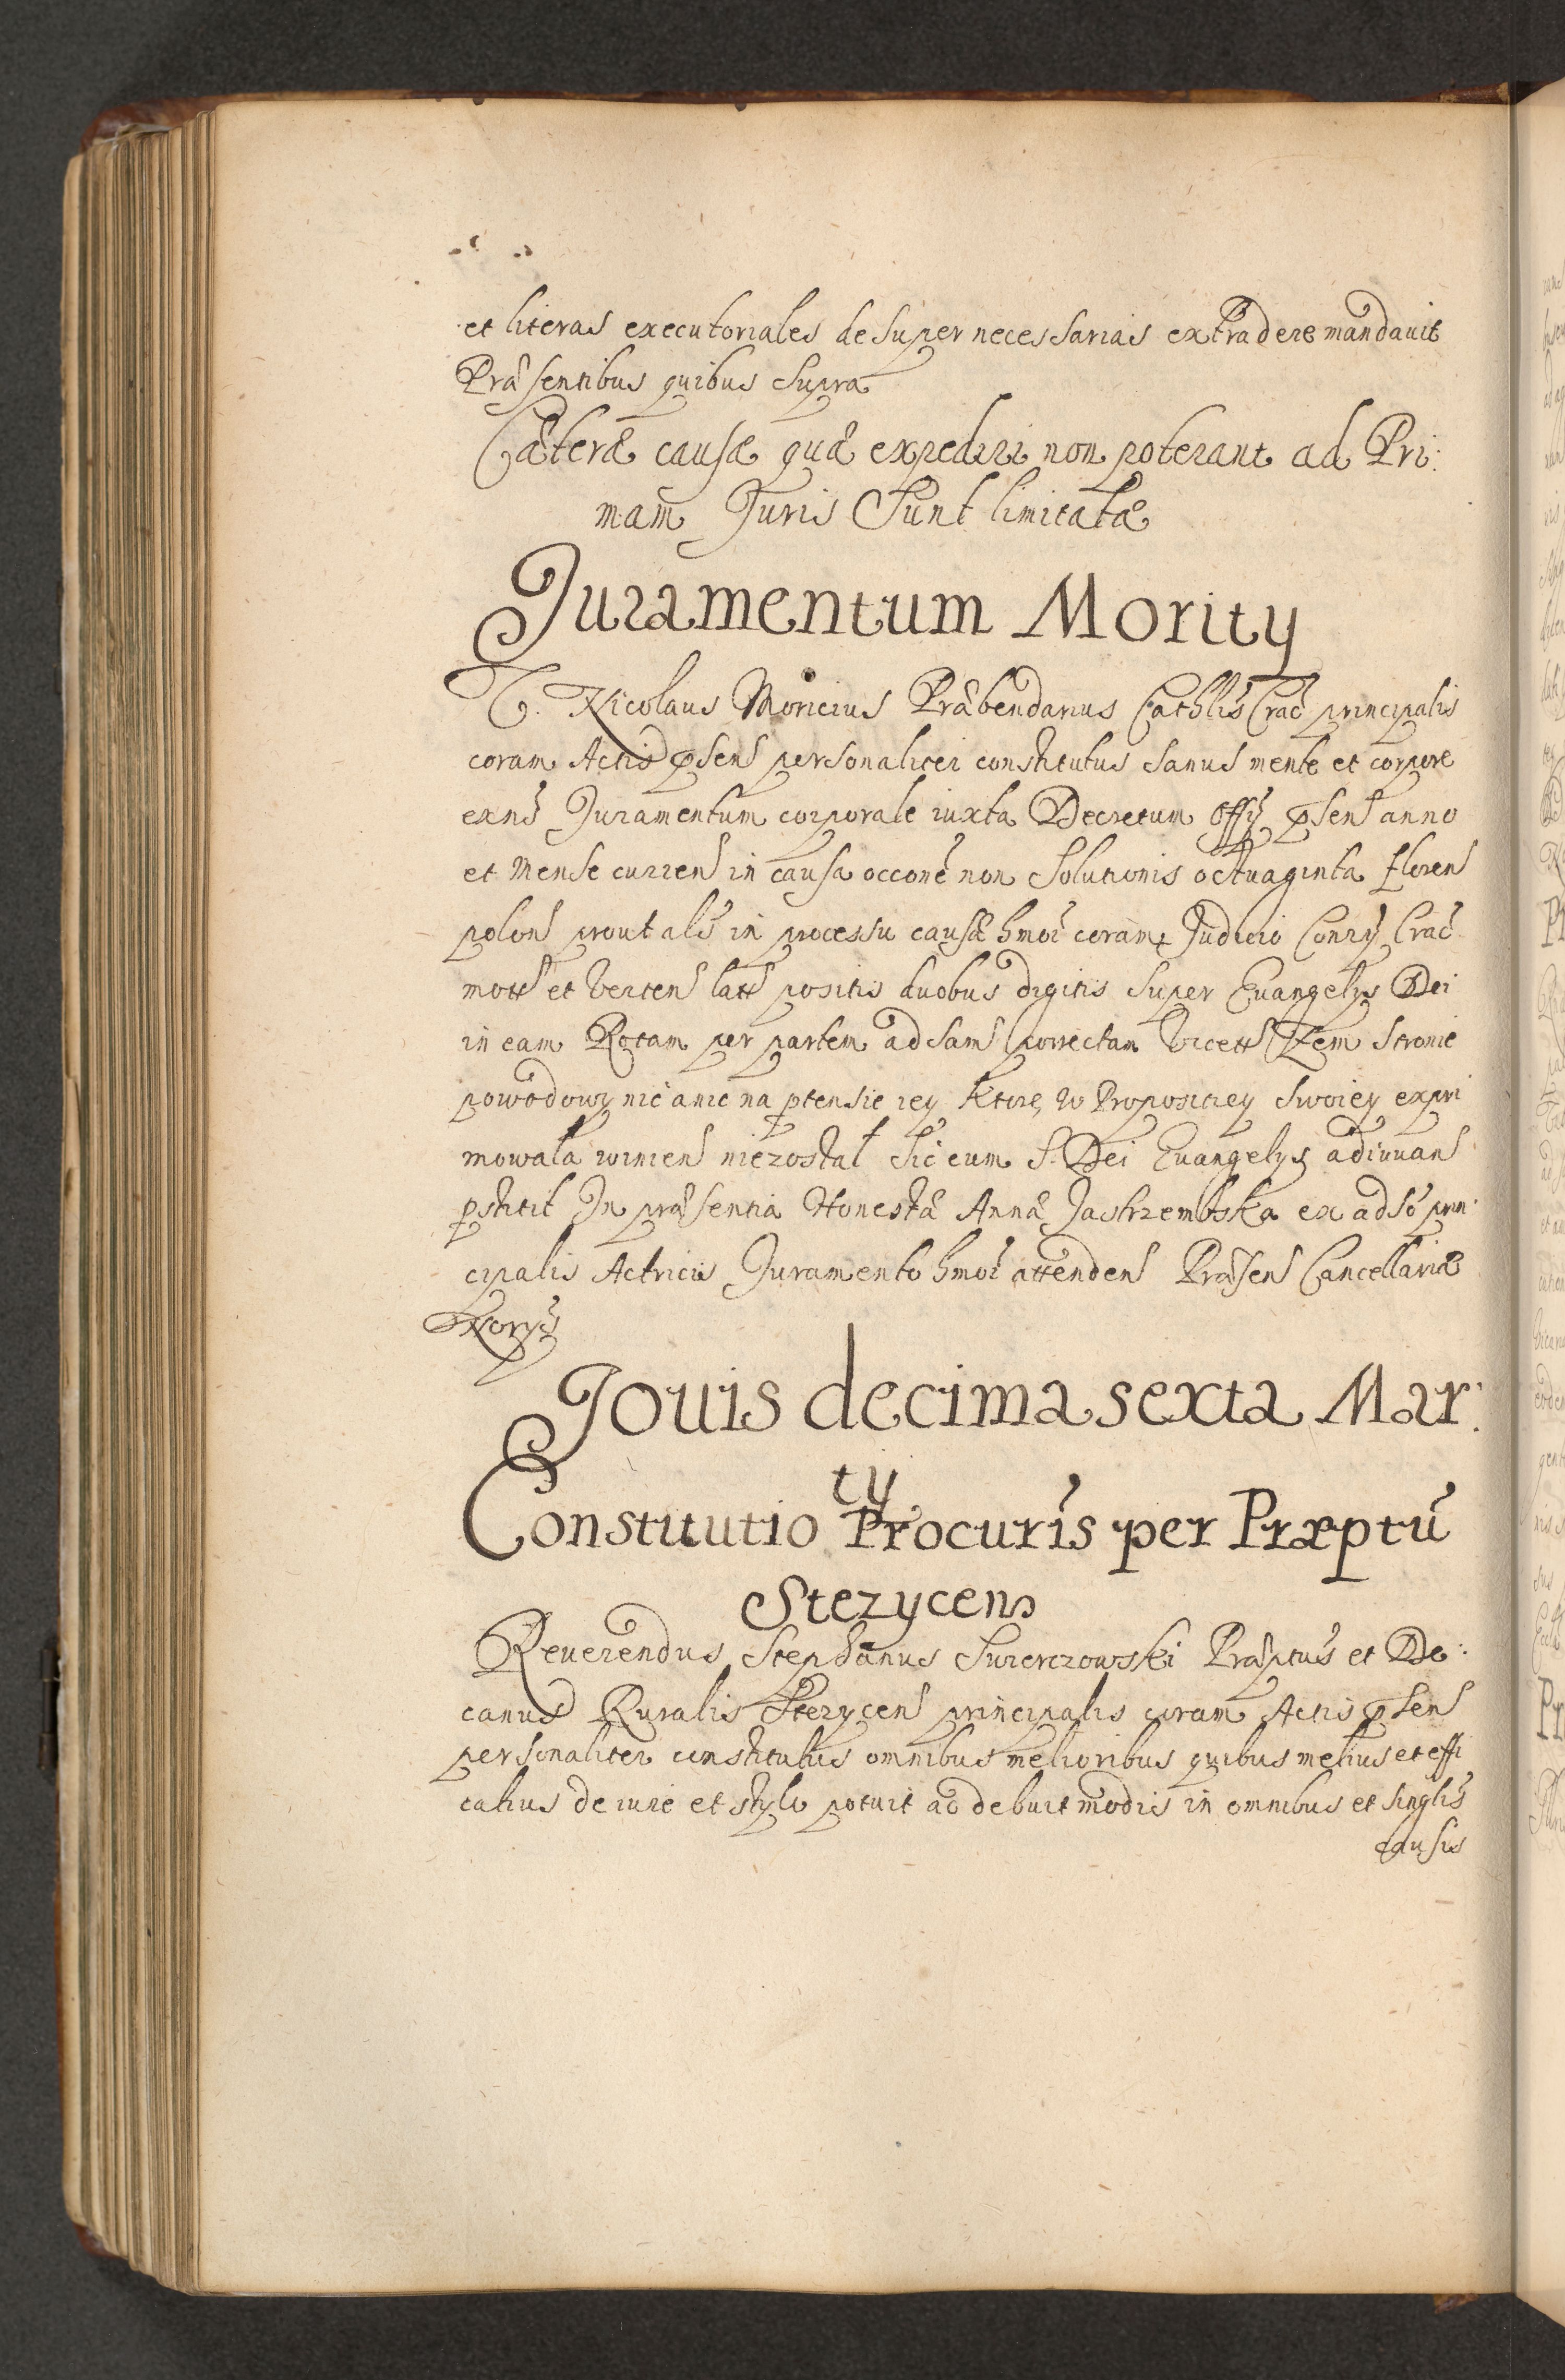 et literas executoriales desuper necessarias extradere mandavit
Præsentibus quibus supra
Cæteræ causæ quæ expediri non poterant ad Pri:
mam Juris Sunt limitatæ
Juramentum Mority
G. Nicolaus Moricius Præbendarius Cathlis Crac principalis
coram Actis psens personaliter constitutus sanus mente et corpore
exns Juramentum corporale iuxta Decretum Offy psens anno
et Mense curren in causa occone non Solutionis octuaginta floren
polon prout als in processu causæ hmoi coram Judicio Conry Crac
mott et verten latt positis duobus digitis super Euangelys Dei
in eam Rotam per partem adsam porrectam vicett Zem stronie
powodowy nic anic na ptensie iey ktore w Propositiey swoiey expri
mowała winien niezostał sic eum S. Dei Euangelys adiuuan
pstitit In præsentia Honestæ Annæ Jastrzembska ex adso prin:
cipalis Actricis Juramento hmoi attenden Præsen Cancellariæ
Norys
Jouis decima sexta Mar:
ty
Constitutio Procuris per Præptu
Stezycens
Reuerendus Stephanus Swierczowski Præptus et De:
canus Ruralis Stezycen principalis coram Actis psens
personaliter constitutus omnibus melioribus quibus melius et effi
catius de iure et stylo potuit ac debuit modis in omnibus et singlis
causis